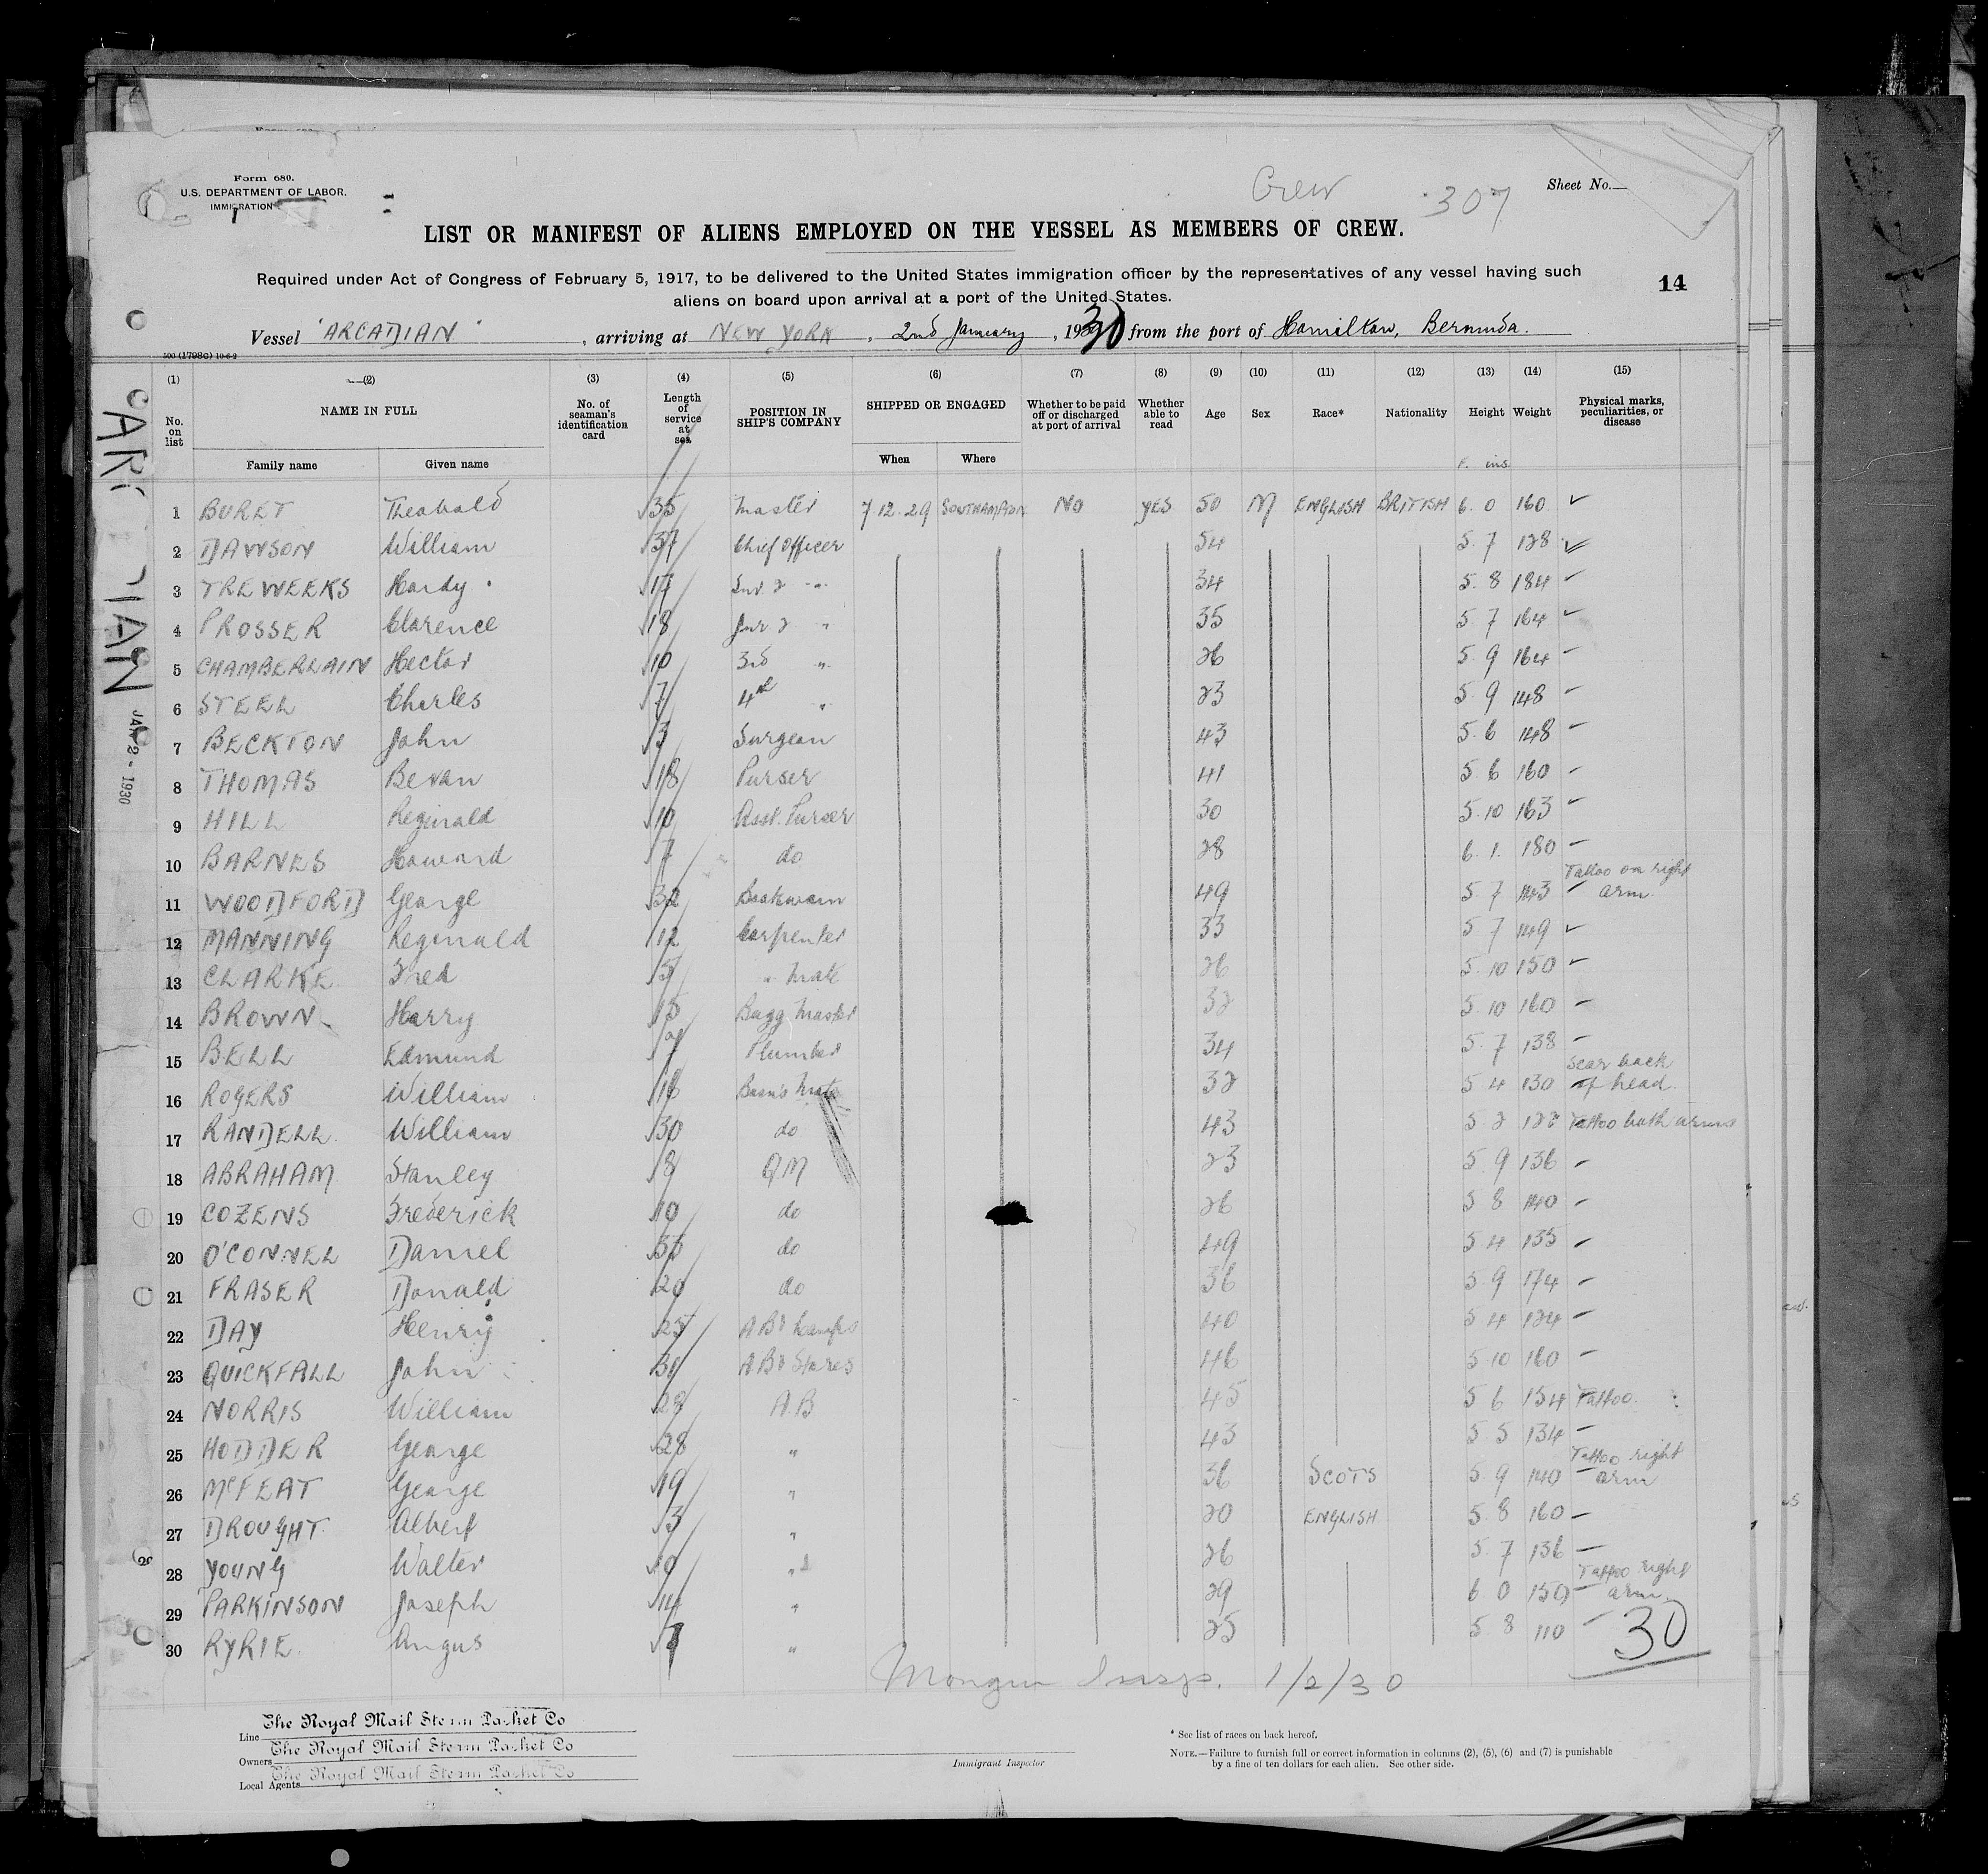 Form 680.
U.S. DEPARTMENT OF LABOR.
IMMIGRATION
Crew 307
Sheet No.
LIST OR MANIFEST OF ALIENS EMPLOYED ON THE VESSEL AS MEMBERS OF CREW.
Required under Act of Congress of February 5, 1917, to be delivered to the United States immigration officer by the representatives of any vessel having such
aliens on board upon arrival at a port of the United States.
14
Vessel "ARCADIAN", arriving at NEW YORK, 2nd January, 1930 from the port of Hamilton, Bermuda.
500 (1798c) 10-6-2
(1) (2) (3) (4) (5) (6) (7) (8) (9) (10) (11) (12) (13) (14) (15)
No. on list NAME IN FULL No. of seaman's identification card Length of service at sea POSITION IN SHIP'S COMPANY SHIPPED OR ENGAGED Whether to be paid off or discharged at port of arrival Whether able to read Age Sex Race* Nationality Height Weight Physical marks, peculiarities, or disease
Family name Given name When Where F. ins
1 BURET Theobald 35 Master 7.12.29 SOUTHAMPTON NO YES 50 M ENGLISH BRITISH 6. 0 160 ✓
2 DAWSON William 37 Chief Officer 54 5. 7 128 ✓
3 TREWEEKS Hardy 17 Snr 2 " 34 5. 8 184
4 PROSSER Clarence 18 Jnr 2 " 35 5. 7 164
5 CHAMBERLAIN Hector 10 3rd " 26 5. 9 164
6 STEEL Charles 7 4th " 23 5. 9 148
7 BECKTON John 3 Surgeon 43 5. 6 148
8 THOMAS Bevan 18 Purser 41 5. 6 160
9 HILL Reginald 10 Asst. Purser 30 5. 10 163
10 BARNES Howard 7 do 28 6. 1. 180
11 WOODFORD George 32 Boatswain 49 5 7 143 Tattoo on right arm
12 MANNING Reginald 12 Carpenter 33 5 7 149
13 CLARKE Fred 5 " Mate 26 5. 10 150
14 BROWN Harry 15 Bagg Master 32 5. 10 160
15 BELL Edmund Plumber 34 5. 7 138
16 ROGERS William 16 Bosn's Mate 32 5 4 130 Scar back of head
17 RANDELL William 30 do 43 5. 2 122 Tattoo both arms
18 ABRAHAM Stanley 8 QM 23 5. 9 136
19 COZENS Frederick 10 do 26 5 8 140
20 O'CONNEL Daniel 33 do 49 5 4 135
21 FRASER Donald 20 do 36 5 9 174
22 DAY Henry 25 AB & Lamps 40 5 4 124
23 QUICKFALL John 31 AB & Stores 46 5 10 160
24 NORRIS William 28 A.B 45 5 6 154 Tattoo.
25 HODDER George 28 " 43 5 5 134
26 McFEAT George 19 " 36 SCOTS 5. 9 140 Tattoo right arm
27 DROUGHT Albert 3 " 20 ENGLISH 5. 8 160
28 YOUNG Walter 10 " 26 5. 7 136
29 PARKINSON Joseph 14 " 29 6 0 150 Tattoo right arm
30 RYRIE Angus 7 " 25 5 8 110
30
Insp. 1/2/30
JAN 2 - 1930
Line The Royal Mail Steam Packet Co
Owners The Royal Mail Steam Packet Co
Local Agents The Royal Mail Steam Packet Co
Immigrant Inspector
* See list of races on back hereof.
NOTE.—Failure to furnish full or correct information in columns (2), (5), (6) and (7) is punishable
by a fine of ten dollars for each alien. See other side.